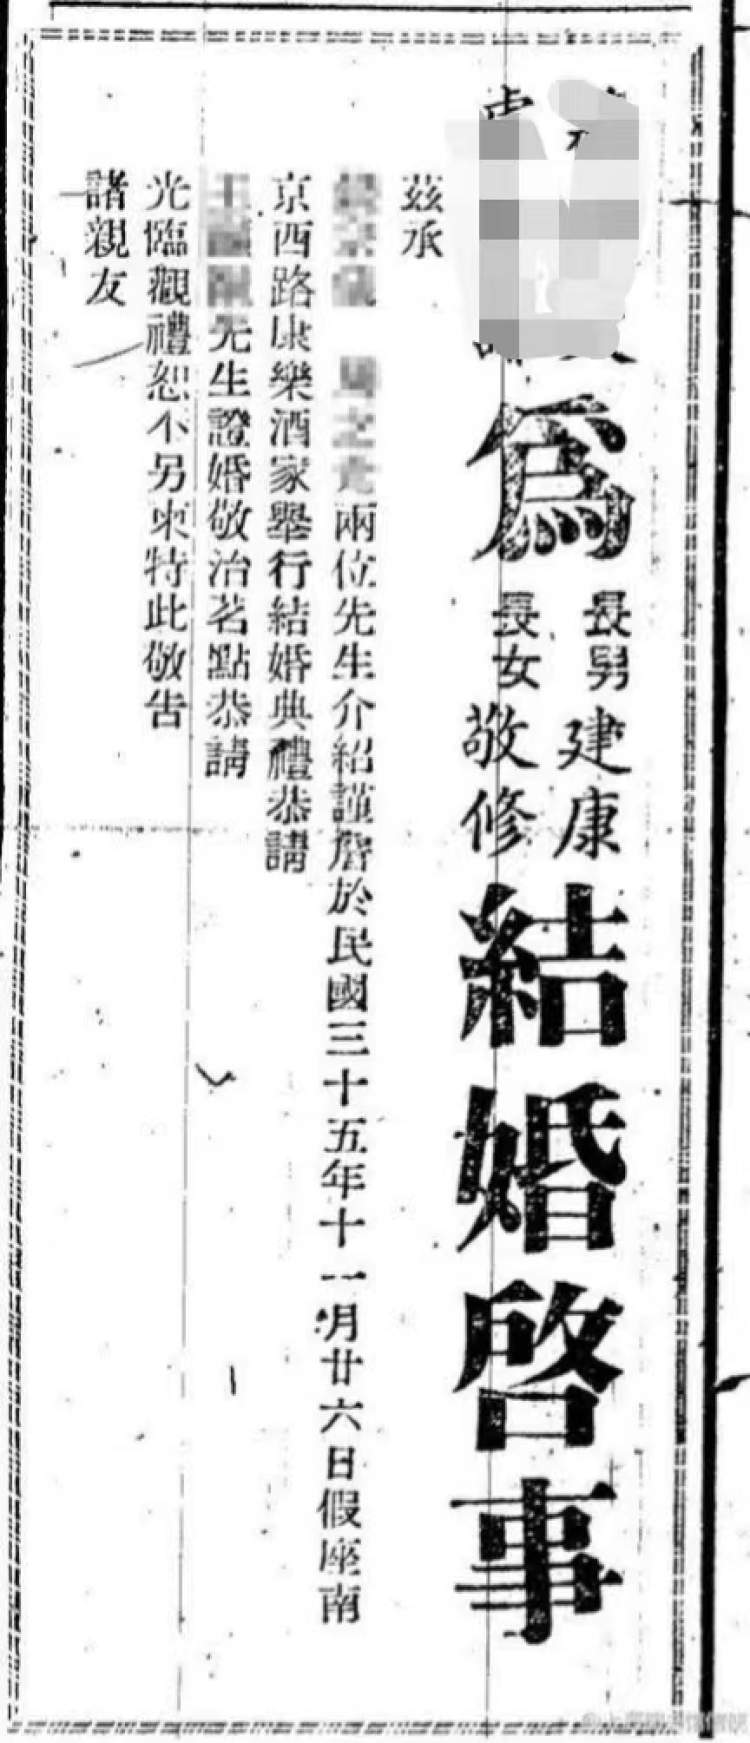 為
長男 建康
長女 敬修
結婚啓事
茲承
兩位先生介紹謹詹於民國三十五年十一月廿六日假座南
京西路康樂酒家舉行結婚典禮恭請
先生證婚敬治茗點恭請
光臨觀禮恕不另柬特此敬告
諸親友